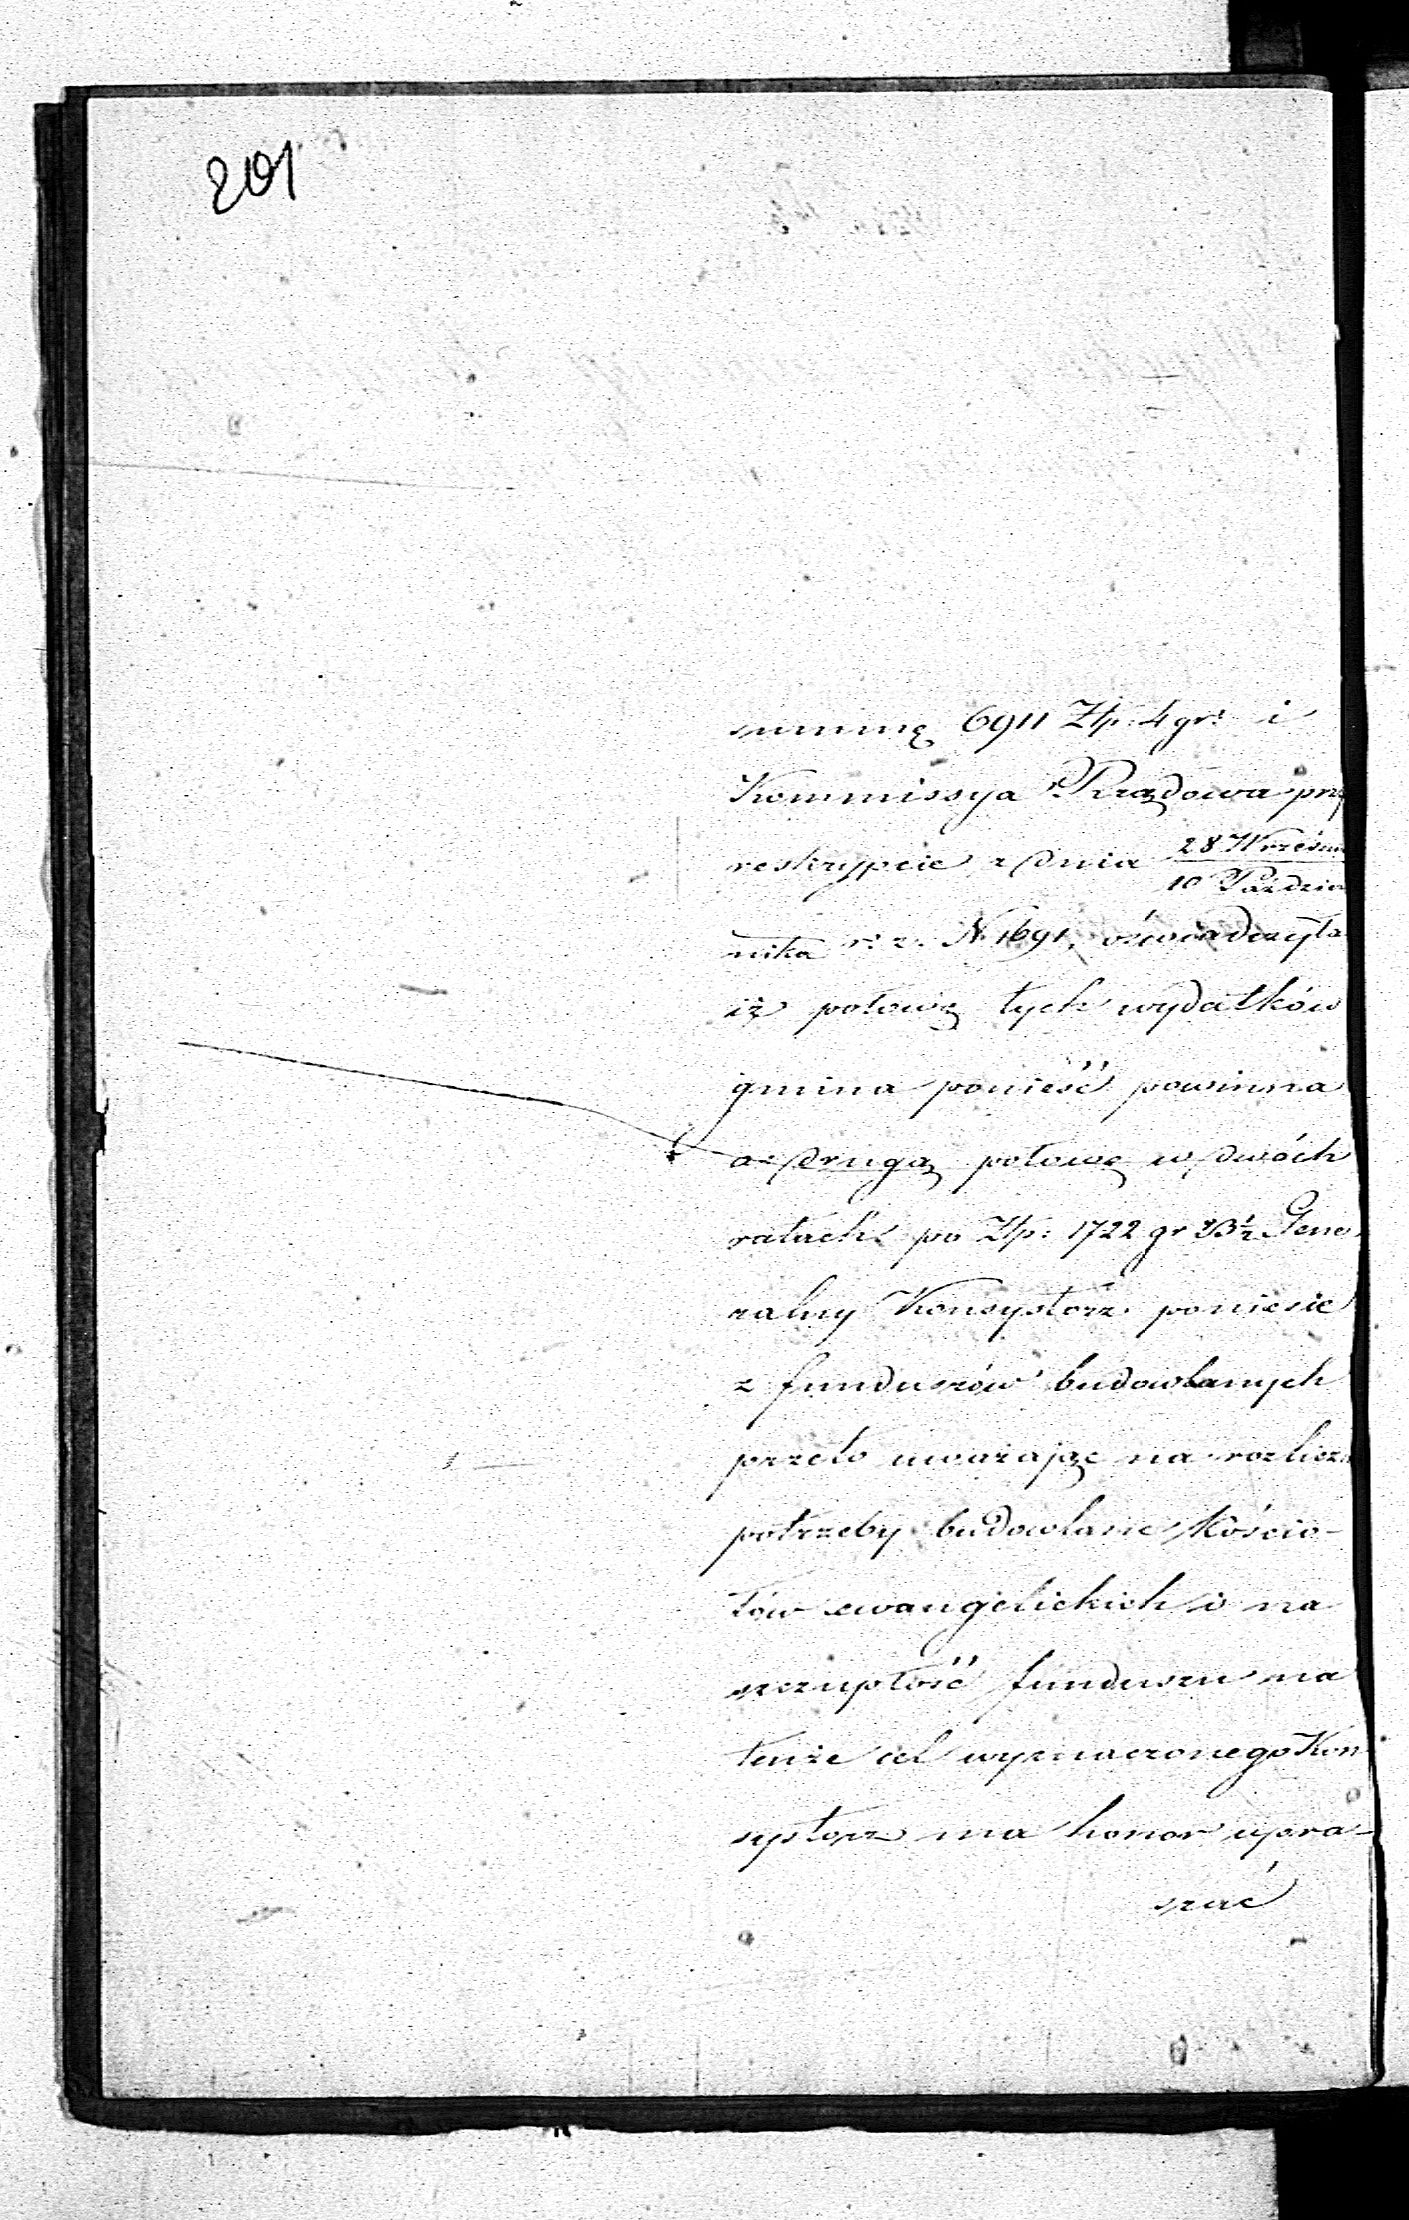 201
summę 6911 Złp. 4 gr: i
Kommissya Rządowa prz
reskrypcie z dnia 28 Wrześni
10 Paździer
nika r: z. N 1691, oświadczyła
iż połowę tych wydatków
gmina ponieść powinna
a drugą połowę w dwóch
ratach po Złp: 1722 gr 23½ Gene
ralny Konsystorz poniesie
z funduszów budowlanych
przeto uważając na rozliczn
potrzeby budowlane Kościo-
łów ewangelickich i na
szczupłość funduszu na
tenże cel wyznaczonego Kon
systorz ma honor upra-
szać